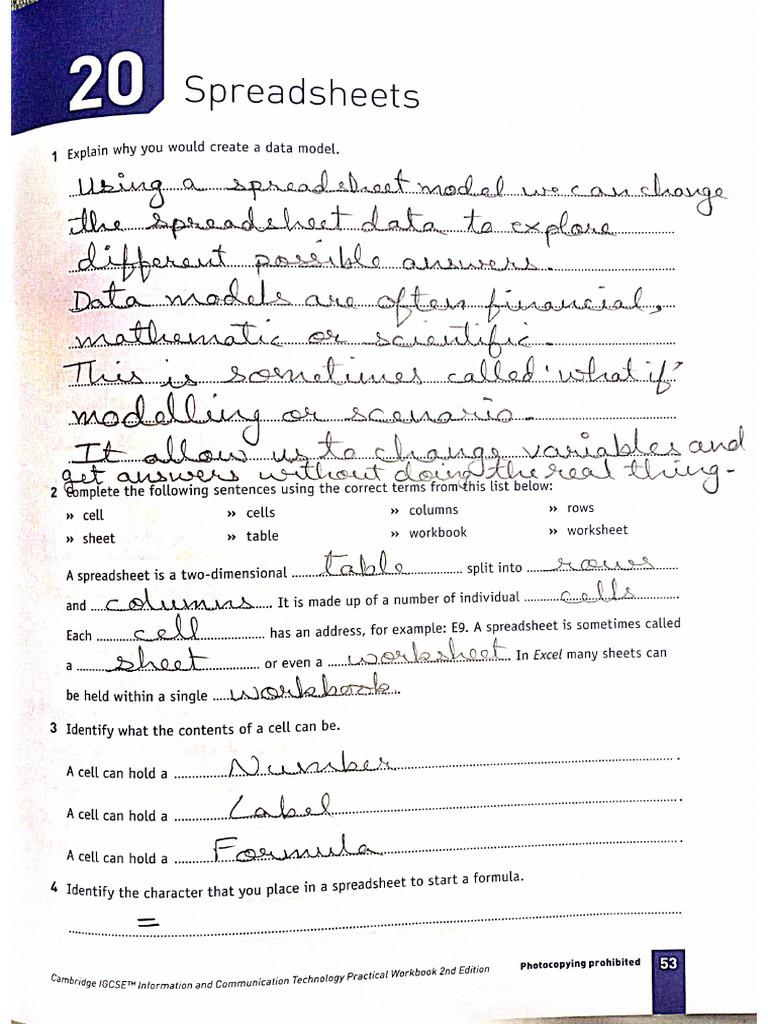 20 Spreadsheets
1 Explain why you would create a data model.
Using a spreadsheet model we can change
the spreadsheet data to explore
different possible answers.
Data models are often financial,
mathematic or scientific.
This is sometimes called 'what if'
modelling or scenario.
It allow us to change variables and
get answers without doing the real thing.
2 Complete the following sentences using the correct terms from this list below:
» cell » cells » columns » rows
» sheet » table » workbook » worksheet
A spreadsheet is a two-dimensional table split into rows
and columns. It is made up of a number of individual cells.
Each cell has an address, for example: E9. A spreadsheet is sometimes called
a sheet or even a worksheet. In Excel many sheets can
be held within a single workbook.
3 Identify what the contents of a cell can be.
A cell can hold a Number.
A cell can hold a Label.
A cell can hold a Formula.
4 Identify the character that you place in a spreadsheet to start a formula.
=
Cambridge IGCSE™ Information and Communication Technology Practical Workbook 2nd Edition Photocopying prohibited 53